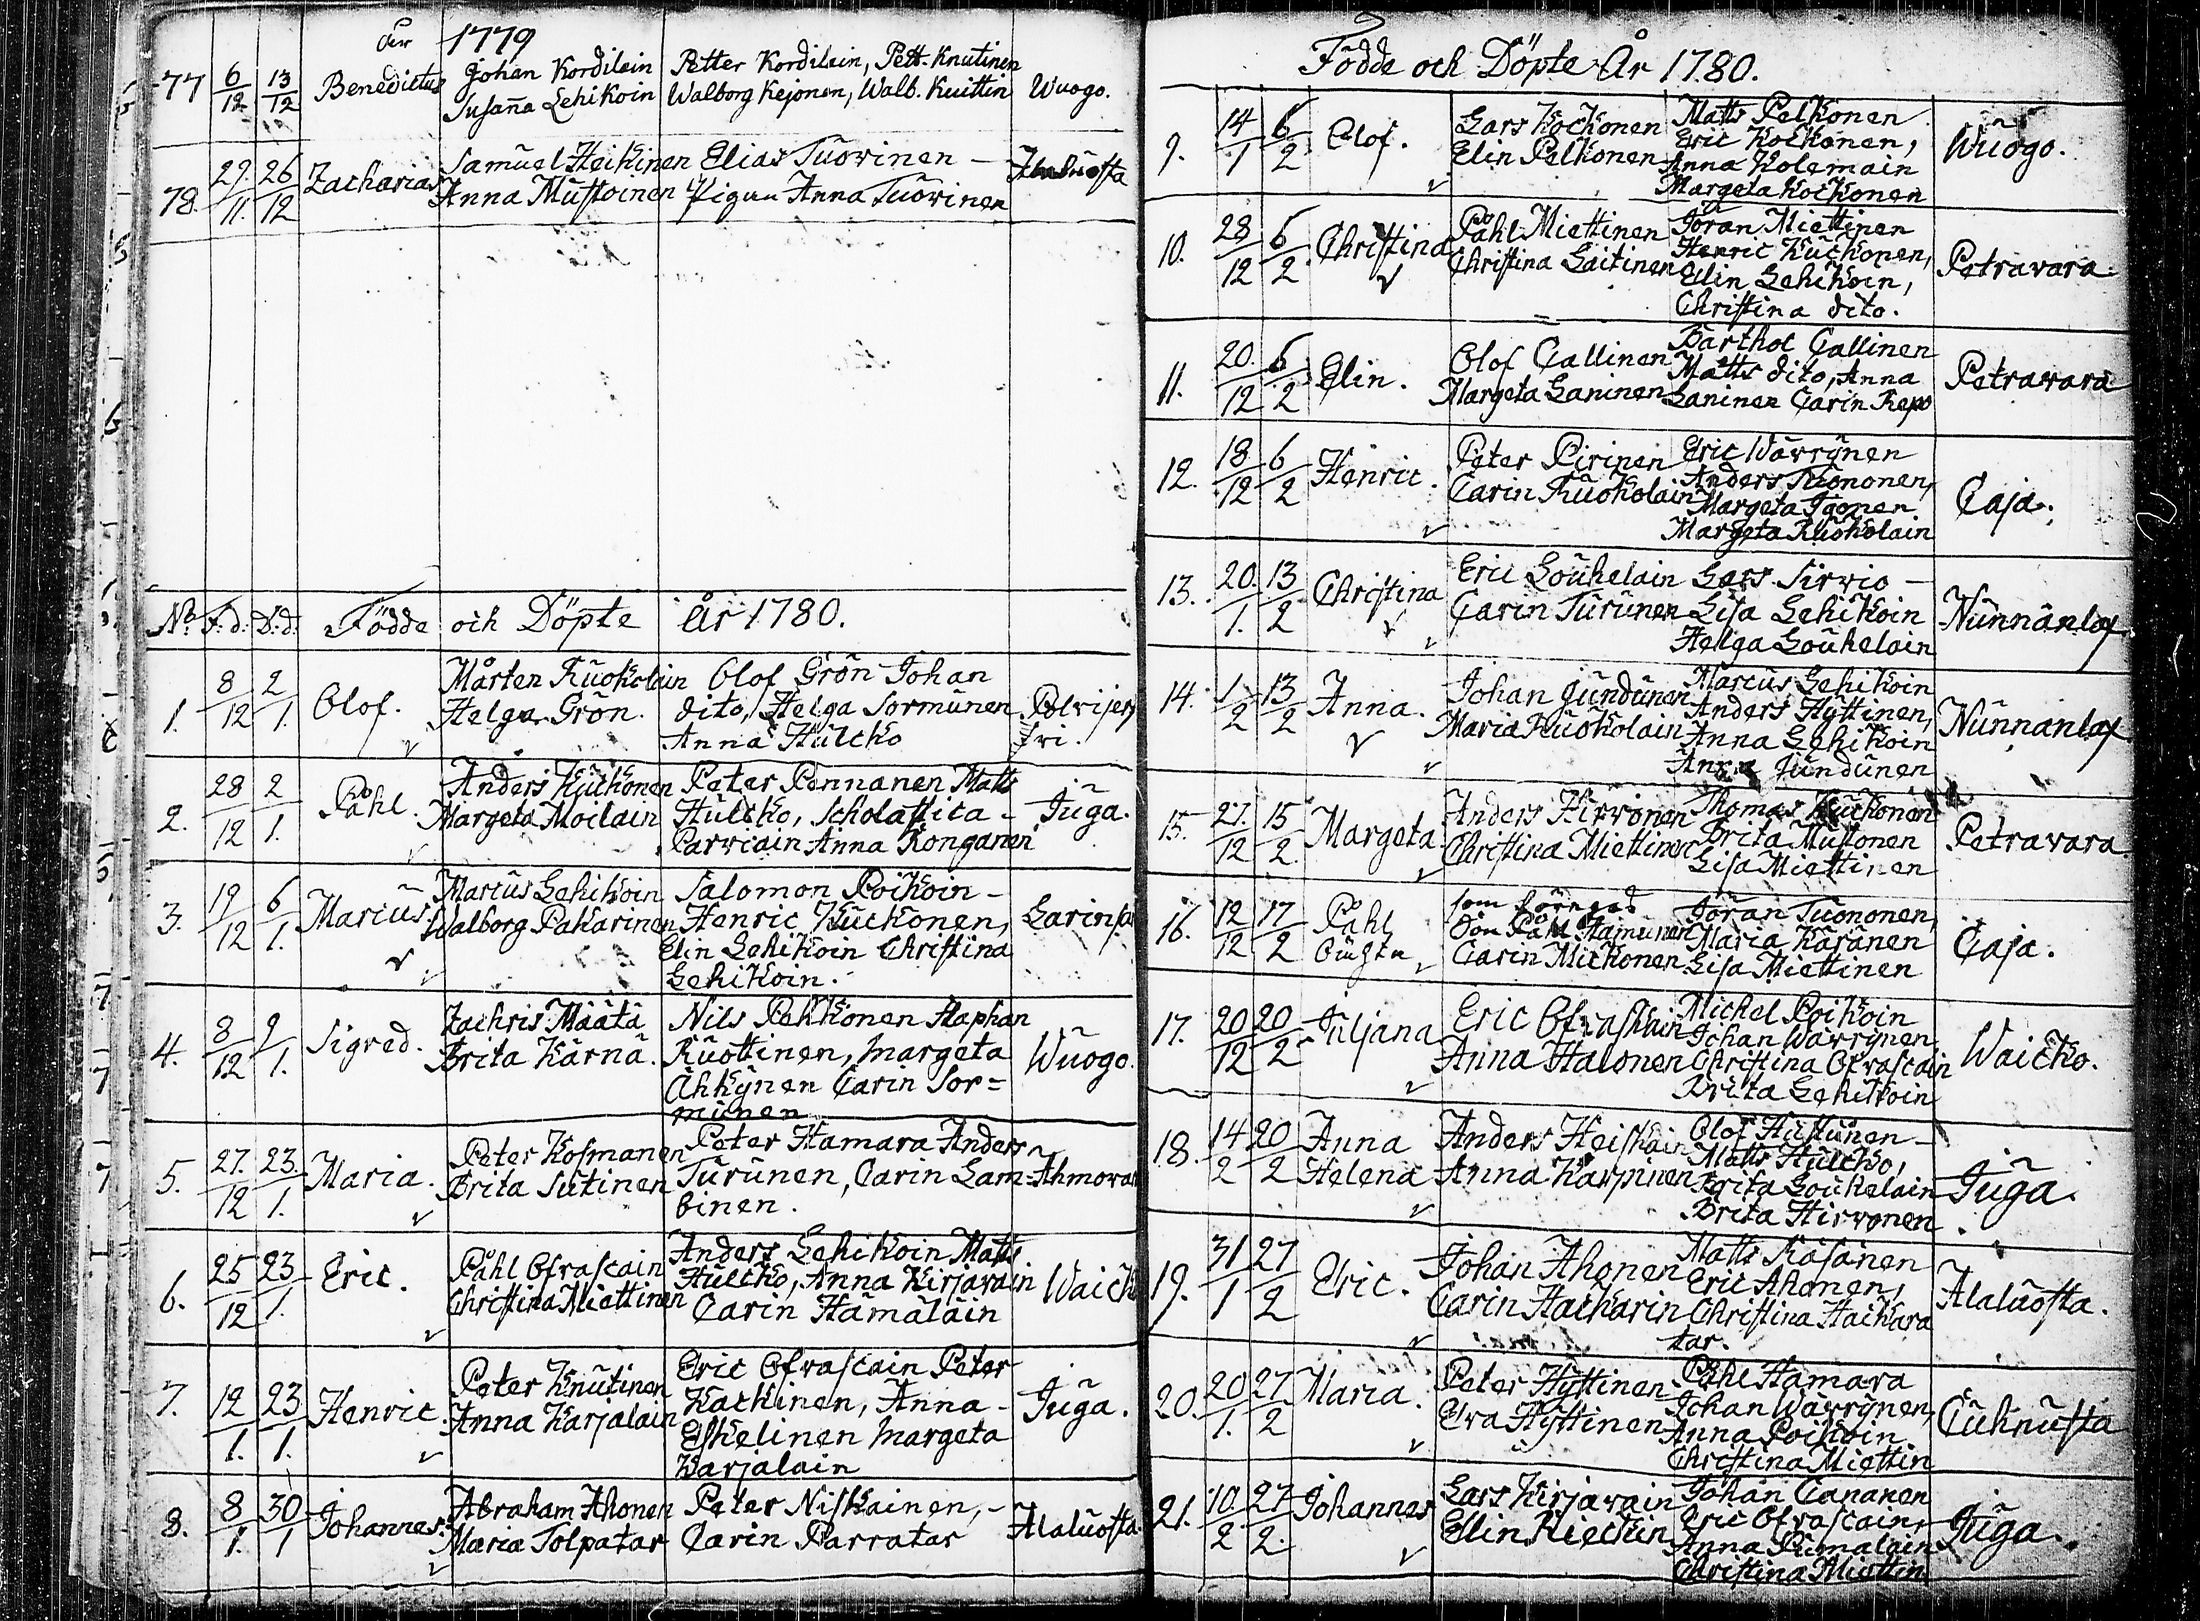 År 1779
77 6/12 13/12 Benedictus Johan Kordilain Petter Kordilain, Pett. Knutinen
Susaña Lehikoin Walborg Kejonen, Walb. Kuittin Wuogo.
78. 29/11. 26/12 Zacharias Samuel Heikinen Elias Tuorinen –
Anna Mustoinen Pigan Anna Tuorinen Alaluosta
No. F.d. D.d. Födde och Döpte År 1780.
1. 8/12 2/1. Olof. Mårten Ruokolain Olof Grön Johan
Helga Grön. dito, Helga Sormunen Polvijer
Anna Hulcko wi.
2. 28/12 2/1. Påhl. Anders Kuckonen Peter Pennanen Matts
Margeta Moilain Hulcko, Scholastica – Juga.
Parviain Anna Ronganen
3. 19/12 6/1. Marcus Marcus Lehikoin Salomon Poikoin –
Walborg Pakarinen Henric Kuckonen, Larinsa
Elin Lehikoin Christina
Lehikoin.
4. 8/12 9/1. Sigred. Zachris Määtä Nils Pehkonen Staphan
Brita Kärnä. Ruottinen, Margeta Wuogo.
Öhkynen Carin Sor=
munen
5. 27./12 23./1. Maria. Peter Kosmanen Peter Hamara Anders
Brita Sutinen Turunen, Carin Lam= Ahmovar
binen.
6. 25/12 23/1. Eric. Påhl Ofvascain Anders Lehikoin Matts
Christina Miettinen Hulcko, Anna Kirjavain Waick
Carin Hämäläin
7. 12/1. 23/1. Henric. Peter Knutinen Eric Ofvascain Peter
Anna Karjalain Kackinen, Anna – Juga.
Eskelinen Margeta
Karjalain
8. 8/1. 30/1 Johannes. Abraham Ahonen Peter Niskainen, –
Maria Tolpatar Carin Parratar Alaluosta.
Födde och Döpte År 1780.
9. 14/1 6/2 Olof. Lars Kockonen Matts Pelkonen
Elin Pelkonen Eric Kockonen, Wuogo.
Anna Kolemain
Margeta Kockonen
10. 28/12 6/2 Christina Påhl Miettinen Jöran Miettinen
Christina Laitinen Henric Kuckonen, Petravara.
Elin Lehikoin,
Christina dito.
11. 20./12 6/2 Elin. Olof Callinen Barthol Callinen
Margeta Laninen Matts dito, Anna Petravara
Laninen Carin Repo
12. 18/12 6/2 Henric. Peter Pirinen Eric Wärrynen
Carin Ruokolain Anders Tuononen, Caja.
Margeta Igonen
Margeta Ruokolain
13. 20./1. 13/2 Christina Eric Louhelain Lars Sirviö –
Carin Turunen Lisa Lehikoin Nunnanlax
Helga Louhelain
14. 1/2 13/2 Anna. Johan Jundunen Marcus Lehikoin
Maria Ruokolain Anders Hyttinen, Nunnanlax
Anna Lehikoin
Anna Jundunen
15. 27./12 15/2. Margeta. Anders Hirvonen Thomas Kuckonen
Christina Miettinen Brita Mustonen Petravara.
Lisa Miettinen
16. 12/12 17/2 Påhl Jöran Tuononen,
Carin Mickonen Maria Käränen Caja.
Lisa Miettinen
17. 20/12 20/2 Juljana Eric Ofvaskain Michel Poikoin
Anna Halonen Johan Wärrynen Waicko.
Christina Ofvascain
Brita Lehikoin
18. 14/2 20/2 Anna Helena Anders Heiskain Olof Hustunen –
Anna Karpinen Matts Hulcko, Juga.
Brita Louhelain
Brita Hirvonen
19. 31/1 27/2 Eric. Johan Ahonen Matts Räsänen
Carin Hackarin Eric Ahonen, Alaluosta.
Christina Hackara
tar.
20. 20/1. 27/2 Maria. Peter Hyttinen Påhl Hamara
Eva Hyttinen Johan Wärrynen, Cuhnusta
Anna Poikoin
Christina Miettin
21. 10./2 27/2. Johannes Lars Kirjavain Johan Cananen
Ellin Rieckin Eric Ofvascain, Juga.
Anna Pumalain
Christina Miettin